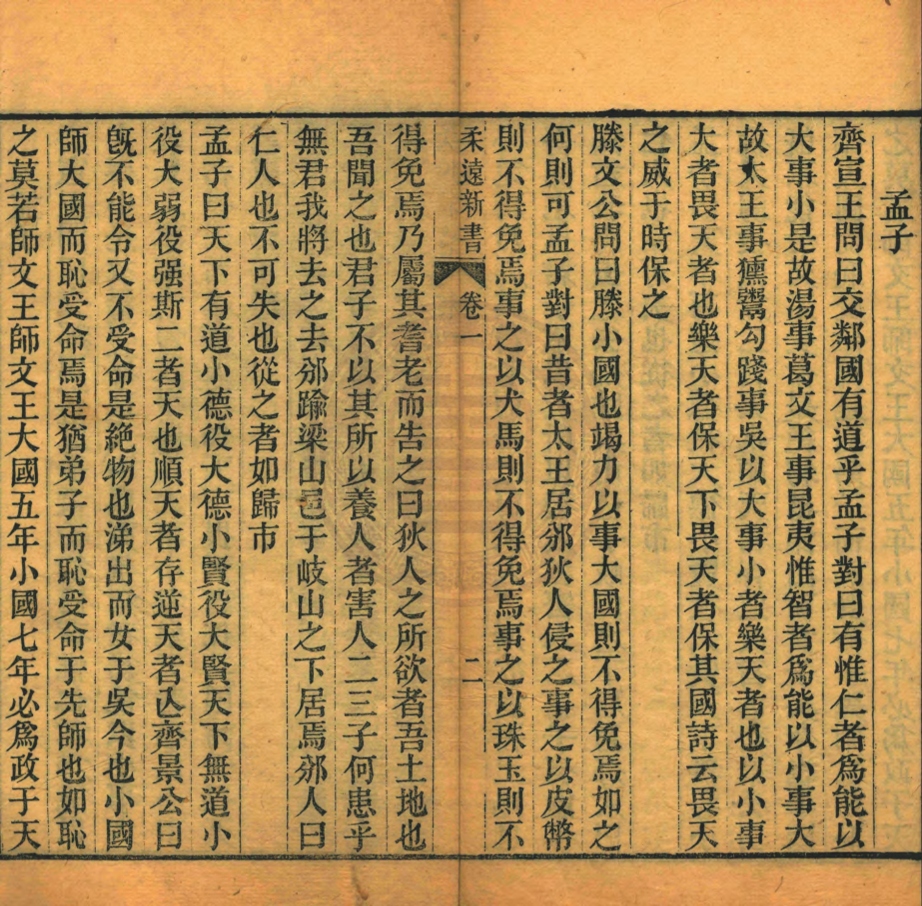 孟子
齊宣王問曰交鄰國有道乎孟子對曰有惟仁者爲能以
大事小是故湯事葛文王事昆夷惟智者爲能以小事大
故太王事獯鬻勾踐事吳以大事小者樂天者也以小事
大者畏天者也樂天者保天下畏天者保其國詩云畏天
之威于時保之
滕文公問曰滕小國也竭力以事大國則不得免焉如之
何則可孟子對曰昔者太王居邠狄人侵之事之以皮幣
則不得免焉事之以犬馬則不得免焉事之以珠玉則不
柔遠新書 卷一 二
得免焉乃屬其耆老而告之曰狄人之所欲者吾土地也
吾聞之也君子不以其所以養人者害人二三子何患乎
無君我將去之去邠踰梁山邑于岐山之下居焉邠人曰
仁人也不可失也從之者如歸市
孟子曰天下有道小德役大德小賢役大賢天下無道小
役大弱役强斯二者天也順天者存逆天者亾齊景公曰
旣不能令又不受命是絶物也涕出而女于吳今也小國
師大國而恥受命焉是猶弟子而恥受命于先師也如恥
之莫若師文王師文王大國五年小國七年必爲政于天